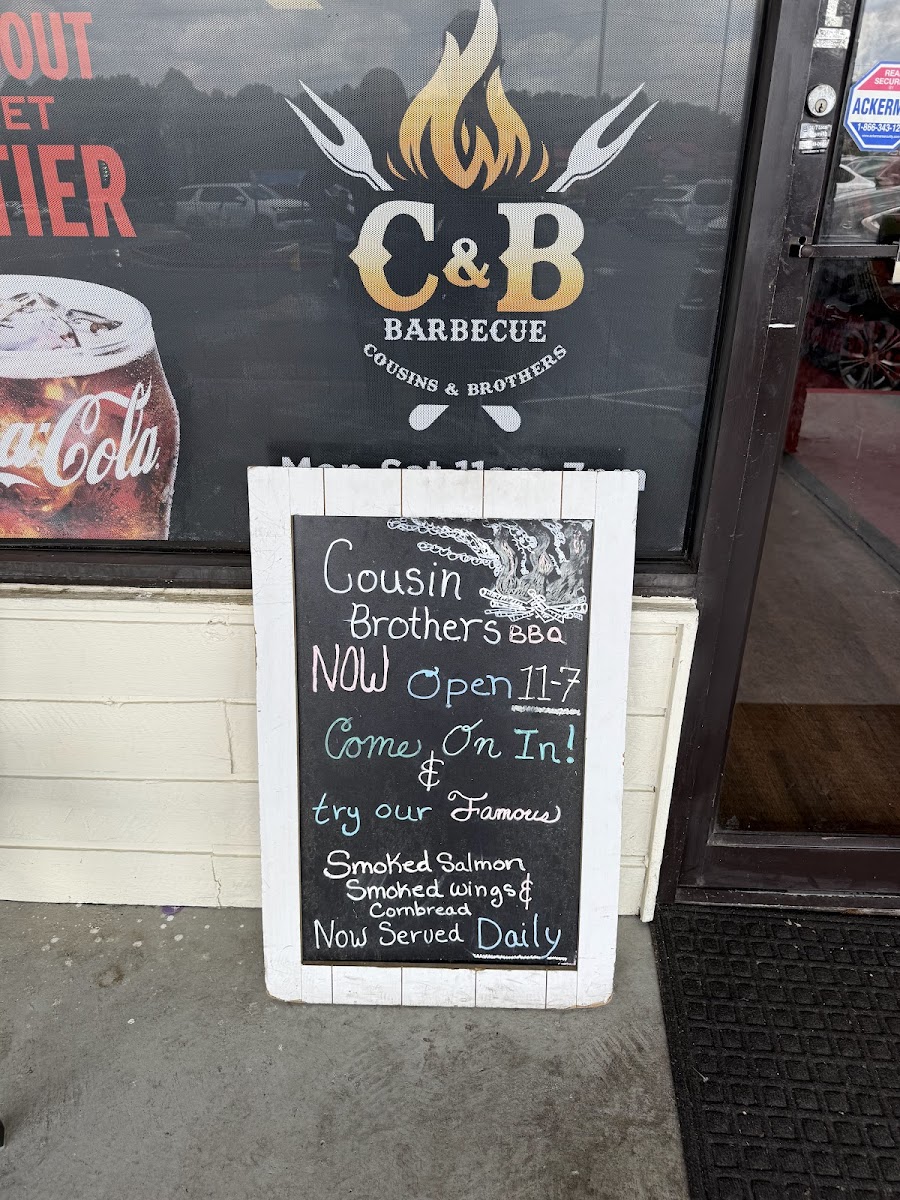 OUT
ET
TIER
Coca-Cola
C & B
BARBECUE
COUSINS & BROTHERS
Mon-Sat 11am-7pm
Cousin
Brothers BBQ
NOW Open 11-7
Come On In!
&
try our Famous
Smoked Salmon
Smoked wings &
Cornbread
Now Served Daily
ACKERM
1-866-343-12